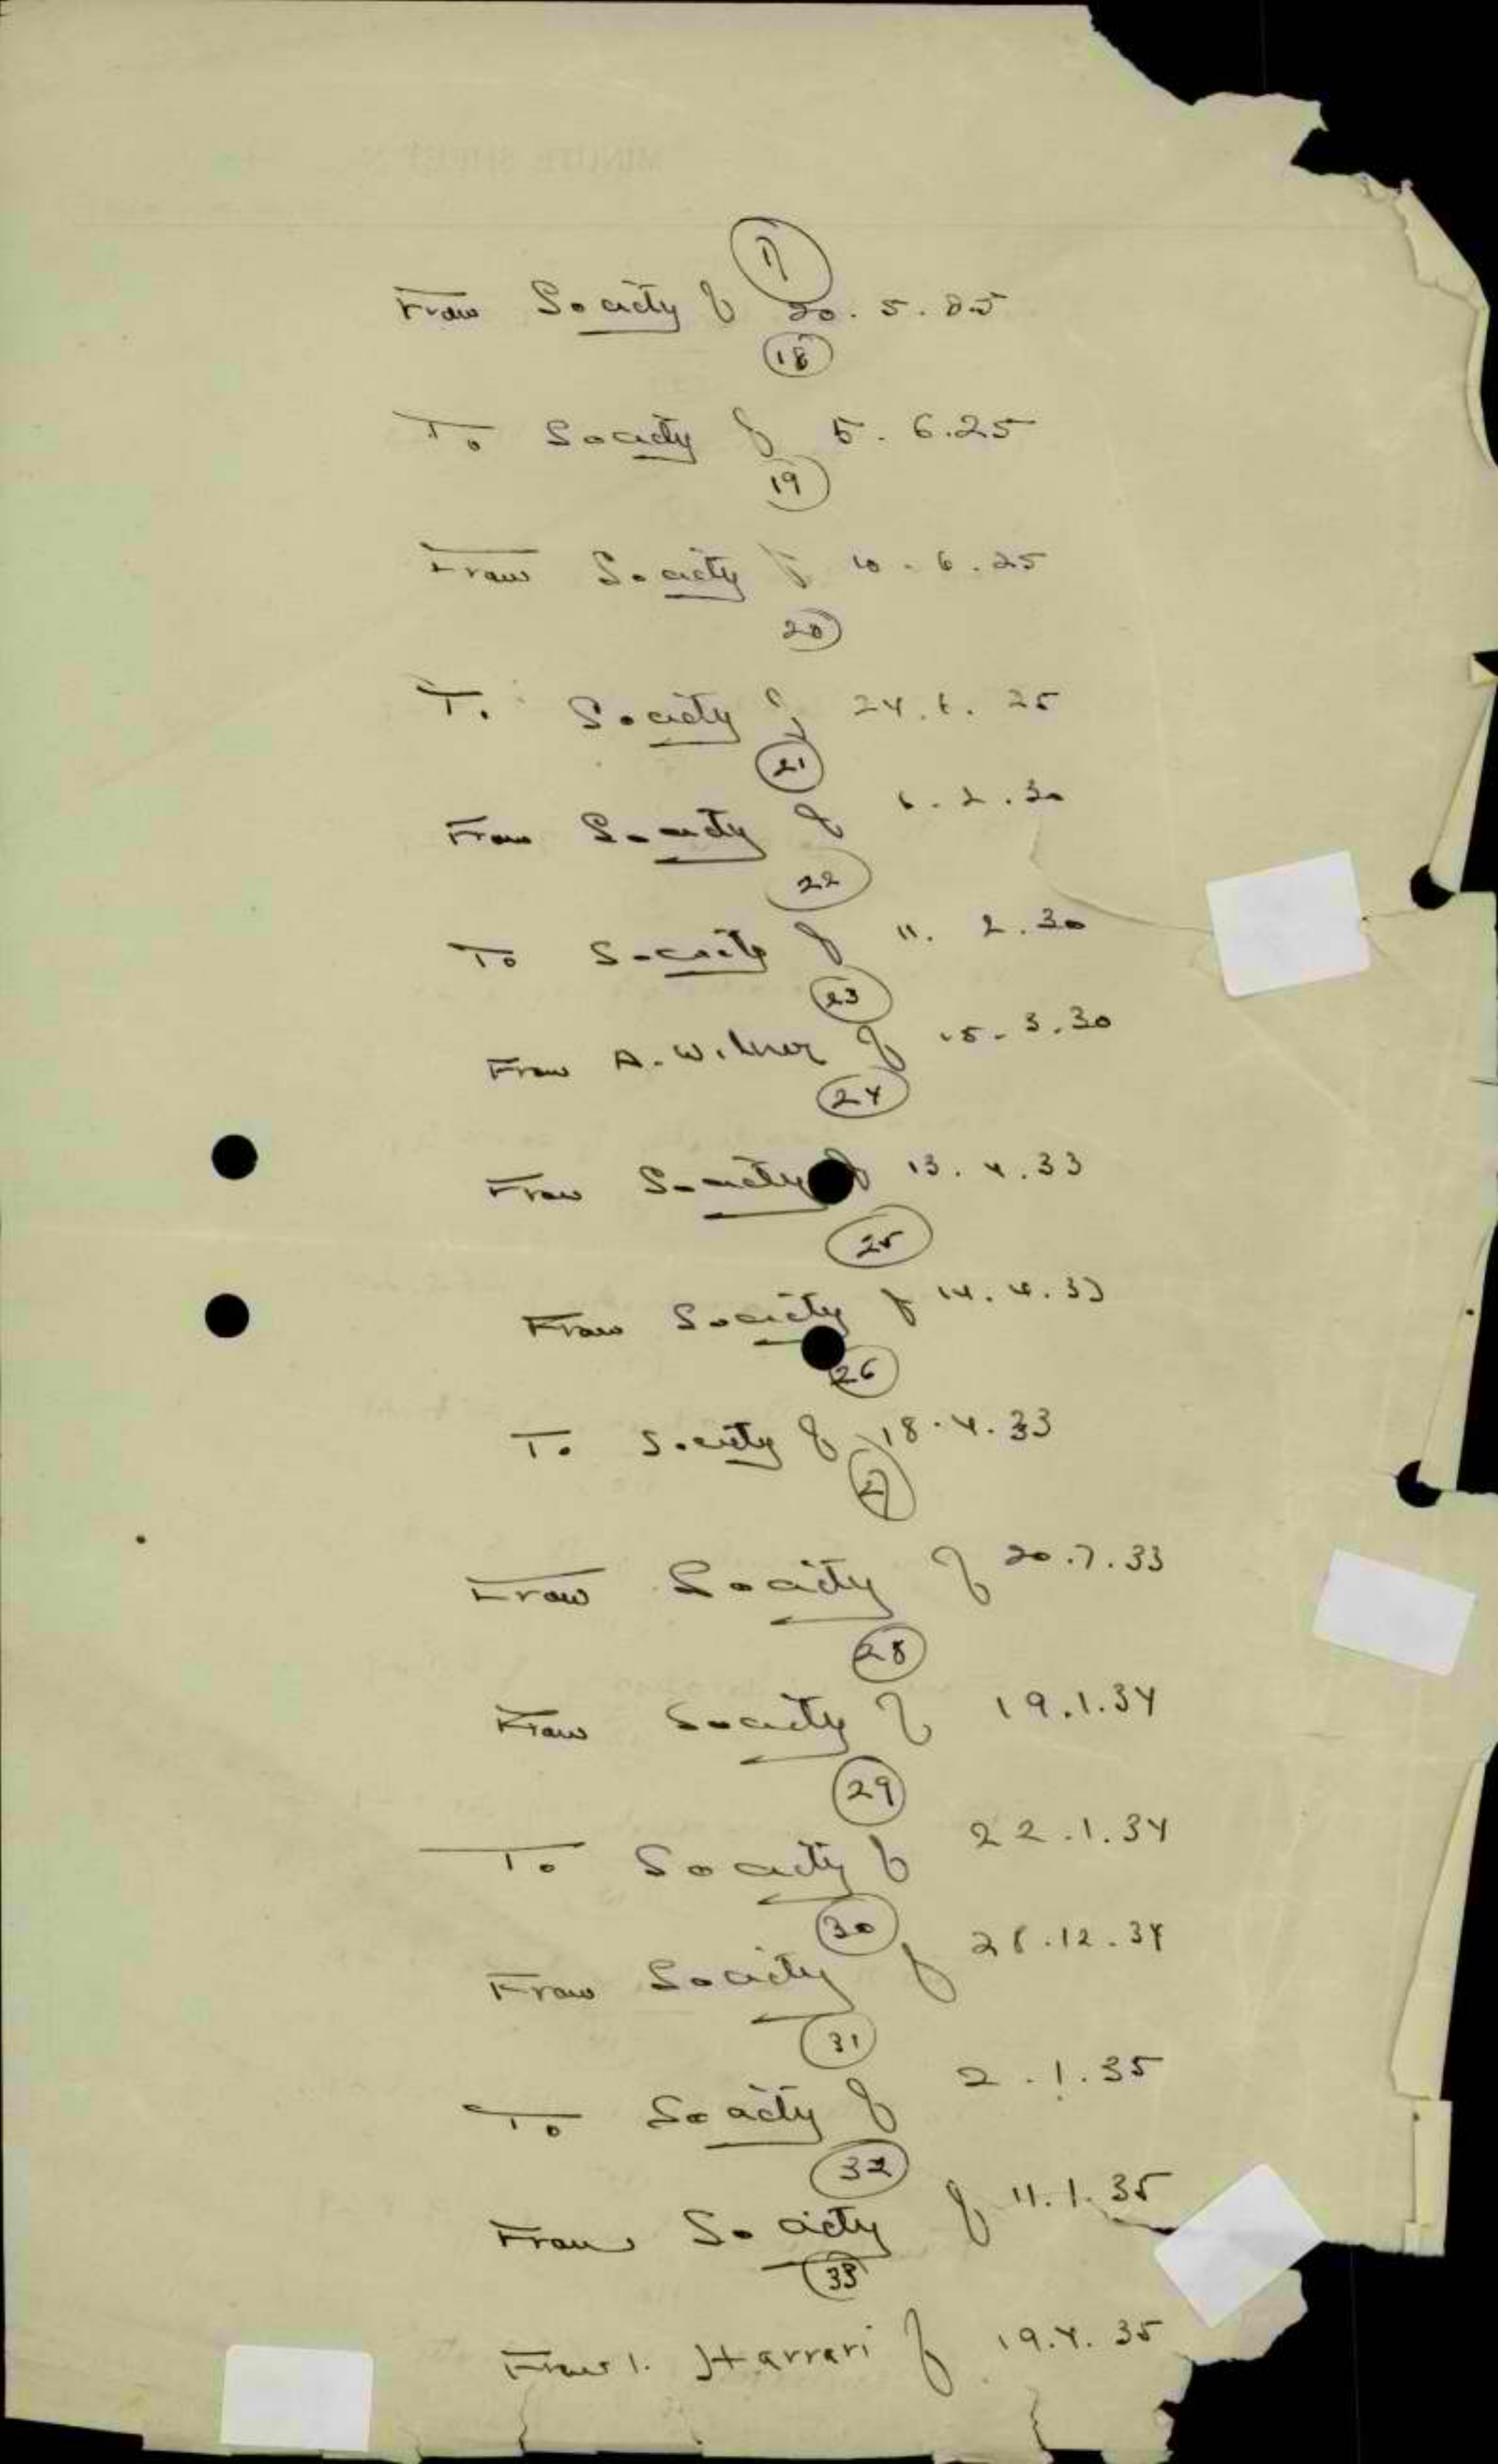 17
From Society of 20.5.25
18
To Society of 5.6.25
19
From Society of 10.6.25
20
To Society of 24.6.25
21
From Society of 6.2.30
22
To Society of 11.2.30
23
From A. Wilner of 15.3.30
24
From Society of 13.4.33
25
From Society of 14.4.33
26
To Society of 18.4.33
27
From Society of 20.7.33
28
From Society of 19.1.34
29
To Society of 22.1.34
30
From Society of 28.12.34
31
To Society of 2.1.35
32
From Society of 11.1.35
33
From I. Harrari of 19.4.35